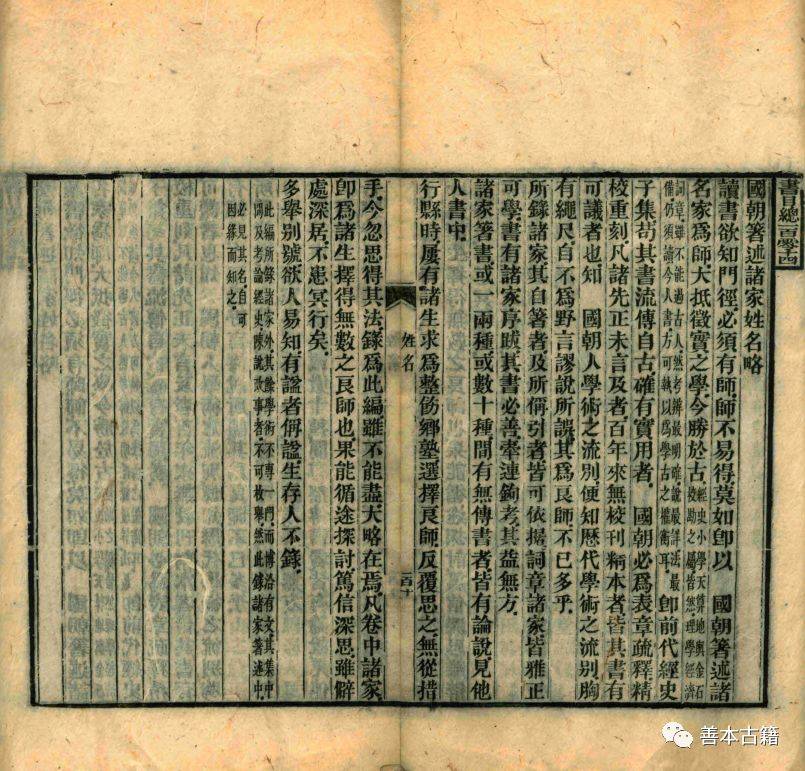 書目總
國朝箸述諸家姓名略
讀書欲知門徑必須有師師不易得莫如卽以 國朝箸述諸
名家爲師大抵徵實之學今勝於古經史小學天算地輿金石校勘之屬皆然理學經濟
詞章雖不能過古人然考辨最明確說最詳法最備仍須讀今人書方可執以爲學古之權衡耳卽前代經史
子集苟其書流傳自古確有實用者 國朝必爲表章疏釋精
校重刻凡諸先正未言及者百年來無校刊精本者皆其書有
可議者也知 國朝人學術之流別便知歷代學術之流別胸
有繩尺自不爲野言謬說所誤其爲良師不已多乎
所錄諸家其自箸者及所偁引者皆可依據詞章諸家皆雅正
可學書有諸家序跋其書必善牽連鉤考其益無方
諸家箸書或一兩種或數十種間有無傳書者皆有論說見他
人書中
姓名
百十
行縣時屢有諸生求爲整飭鄉塾選擇良師反覆思之無從措
手今忽思得其法錄爲此編雖不能盡大略在焉凡卷中諸家
卽爲諸生擇得無數之良師也果能循途探討篤信深思雖僻
處深居不患冥行矣
多舉別號欲人易知有謚者偁謚生存人不錄
此編所錄諸家外其餘學術不專一門而博洽有文其集中
間及考論經史陳說政事者不可枚舉然此錄諸家著述中
必見其名自可
因緣而知之
善本古籍